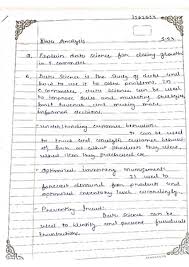 Data Analysis
Q. Explain data science for closing
in E-commerce.
Data Science is the study of data and
how to use it to solve problems. In
E-commerce, data science can be used
to improve sales and marketing strategies,
boost revenue and making more
informed decision.
Understanding customer behaviour:
It can be used
to track and analyze customer behaviour
such as what products they view,
what items they purchased etc.
Optimized inventory management:
It used to
forecast demand for products and
optimized inventory level accordingly.
Preventing fraud:
Data science can be
used to identify and prevent fraudulent
transactions.